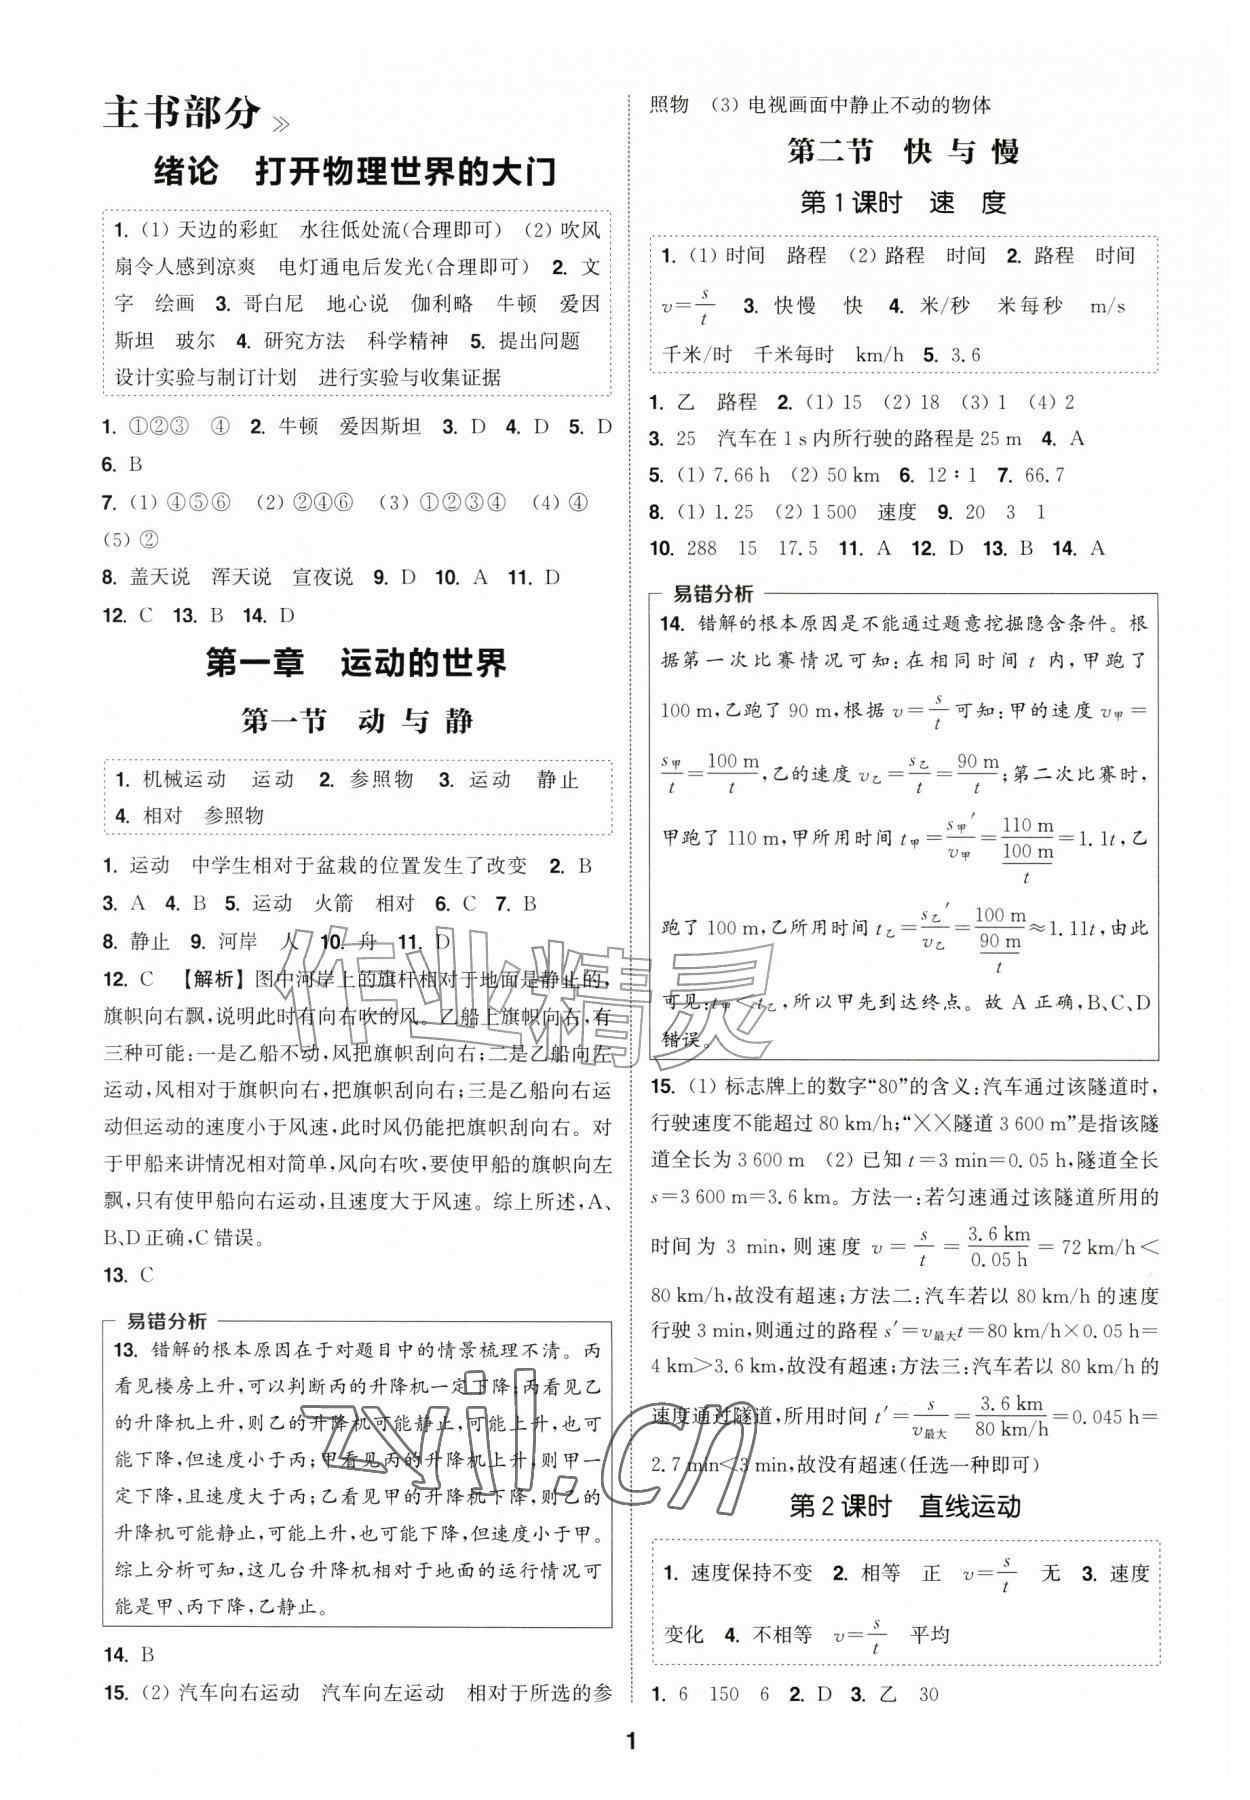 主书部分
绪论　打开物理世界的大门
1. (1) 天边的彩虹　水往低处流(合理即可)　(2) 吹风
扇令人感到凉爽　电灯通电后发光(合理即可)　2. 文
字　绘画　3. 哥白尼　地心说　伽利略　牛顿　爱因
斯坦　玻尔　4. 研究方法　科学精神　5. 提出问题
设计实验与制订计划　进行实验与收集证据
1. ①②③　④　2. 牛顿　爱因斯坦　3. D　4. D　5. D
6. B
7. (1) ④⑤⑥　(2) ②④⑥　(3) ①②③④　(4) ④
(5) ②
8. 盖天说　浑天说　宣夜说　9. D　10. A　11. D
12. C　13. B　14. D
第一章　运动的世界
第一节　动 与 静
1. 机械运动　运动　2. 参照物　3. 运动　静止
4. 相对　参照物
1. 运动　中学生相对于盆栽的位置发生了改变　2. B
3. A　4. B　5. 运动　火箭　相对　6. C　7. B
8. 静止　9. 河岸　人　10. 舟　11. D
12. C　【解析】图中河岸上的旗杆相对于地面是静止的,
旗帜向右飘,说明此时有向右吹的风。乙船上旗帜向右,有
三种可能:一是乙船不动,风把旗帜刮向右;二是乙船向左
运动,风相对于旗帜向右,把旗帜刮向右;三是乙船向右运
动但运动的速度小于风速,此时风仍能把旗帜刮向右。对
于甲船来讲情况相对简单,风向右吹,要使甲船的旗帜向左
飘,只有使甲船向右运动,且速度大于风速。综上所述,A、
B、D正确,C错误。
13. C
易错分析
13. 错解的根本原因在于对题目中的情景梳理不清。丙
看见楼房上升,可以判断丙的升降机一定下降;丙看见乙
的升降机上升,则乙的升降机可能静止,可能上升,也可
能下降,但速度小于丙;甲看见丙的升降机上升,则甲一
定下降,且速度大于丙;乙看见甲的升降机下降,则乙的
升降机可能静止,可能上升,也可能下降,但速度小于甲。
综上分析可知,这几台升降机相对于地面的运行情况可
能是甲、丙下降,乙静止。
14. B
15. (2) 汽车向右运动　汽车向左运动　相对于所选的参
照物　(3) 电视画面中静止不动的物体
第二节　快 与 慢
第1课时　速　度
1. (1) 时间　路程　(2) 路程　时间　2. 路程　时间
v=s/t　3. 快慢　快　4. 米/秒　米每秒　m/s
千米/时　千米每时　km/h　5. 3.6
1. 乙　路程　2. (1) 15　(2) 18　(3) 1　(4) 2
3. 25　汽车在1 s内所行驶的路程是25 m　4. A
5. (1) 7.66 h　(2) 50 km　6. 12∶1　7. 66.7
8. (1) 1.25　(2) 1 500　速度　9. 20　3　1
10. 288　15　17.5　11. A　12. D　13. B　14. A
易错分析
14. 错解的根本原因是不能通过题意挖掘隐含条件。根
据第一次比赛情况可知:在相同时间 t 内,甲跑了
100 m,乙跑了 90 m,根据 v=s/t 可知:甲的速度 v甲=
s甲/t=100 m/t,乙的速度 v乙=s乙/t=90 m/t;第二次比赛时,
甲跑了 110 m,甲所用时间 t甲=s甲′/v甲=110 m/(100 m/t)=1.1t,乙
跑了 100 m,乙所用时间 t乙=s乙′/v乙=100 m/(90 m/t)≈1.11t,由此
可见:t甲<t乙,所以甲先到达终点。故 A 正确,B、C、D
错误。
15. (1) 标志牌上的数字“80”的含义:汽车通过该隧道时,
行驶速度不能超过 80 km/h;“××隧道 3 600 m”是指该隧
道全长为 3 600 m　(2) 已知 t=3 min=0.05 h,隧道全长
s=3 600 m=3.6 km。方法一:若匀速通过该隧道所用的
时间为 3 min,则速度 v=s/t=3.6 km/0.05 h=72 km/h<
80 km/h,故没有超速;方法二:汽车若以 80 km/h 的速度
行驶 3 min,则通过的路程 s′=v最大t=80 km/h×0.05 h=
4 km>3.6 km,故没有超速;方法三:汽车若以 80 km/h 的
速度通过隧道,所用时间 t′=s/v最大=3.6 km/80 km/h=0.045 h=
2.7 min<3 min,故没有超速(任选一种即可)
第2课时　直线运动
1. 速度保持不变　2. 相等　正　v=s/t　无　3. 速度
变化　4. 不相等　v=s/t　平均
1. 6　150　6　2. D　3. 乙　30
1
作业精灵
zyjl.cn